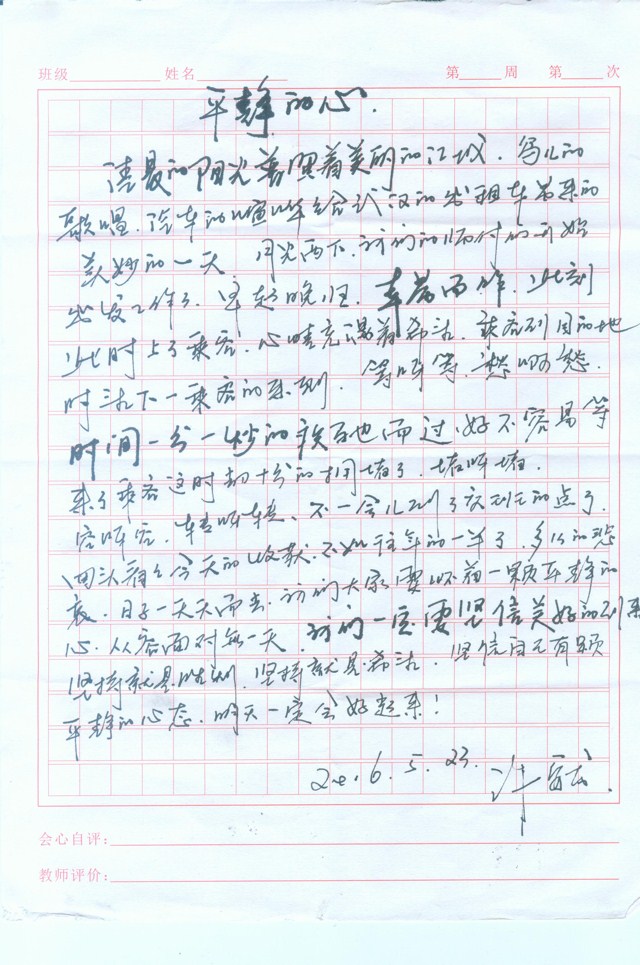 班级 姓名 第 周 第 次
平静的心.
清晨的阳光普照着美丽的江城.鸟儿的
歌唱.汽车的喧哗给武汉的出租车带来的
美妙的一天. 的师付们开始
出发工作了.早起晚归. 而作.此刻
此时上了乘客.心情充满着希望.乘客到目的地
时 下一乘客的来到.等呀等.愁啊愁.
时间一分一秒的 而过.好不容易等
来了乘客这时却十分的拥堵了.堵呀堵.
容呀容.转呀转、不一会儿到了交班的点了.
回头看看今天的收获.不如往年的一半了.多么的悲
哀.日子一天天而去.我们大家要怀着一颗平静的
心.从容面对每一天.我们一定要坚信美好的到来
坚持就是胜利.坚持就是希望.坚信自己有颗
平静的心态.明天一定会好起来!
2016.5.23. 许
会心自评:
教师评价: